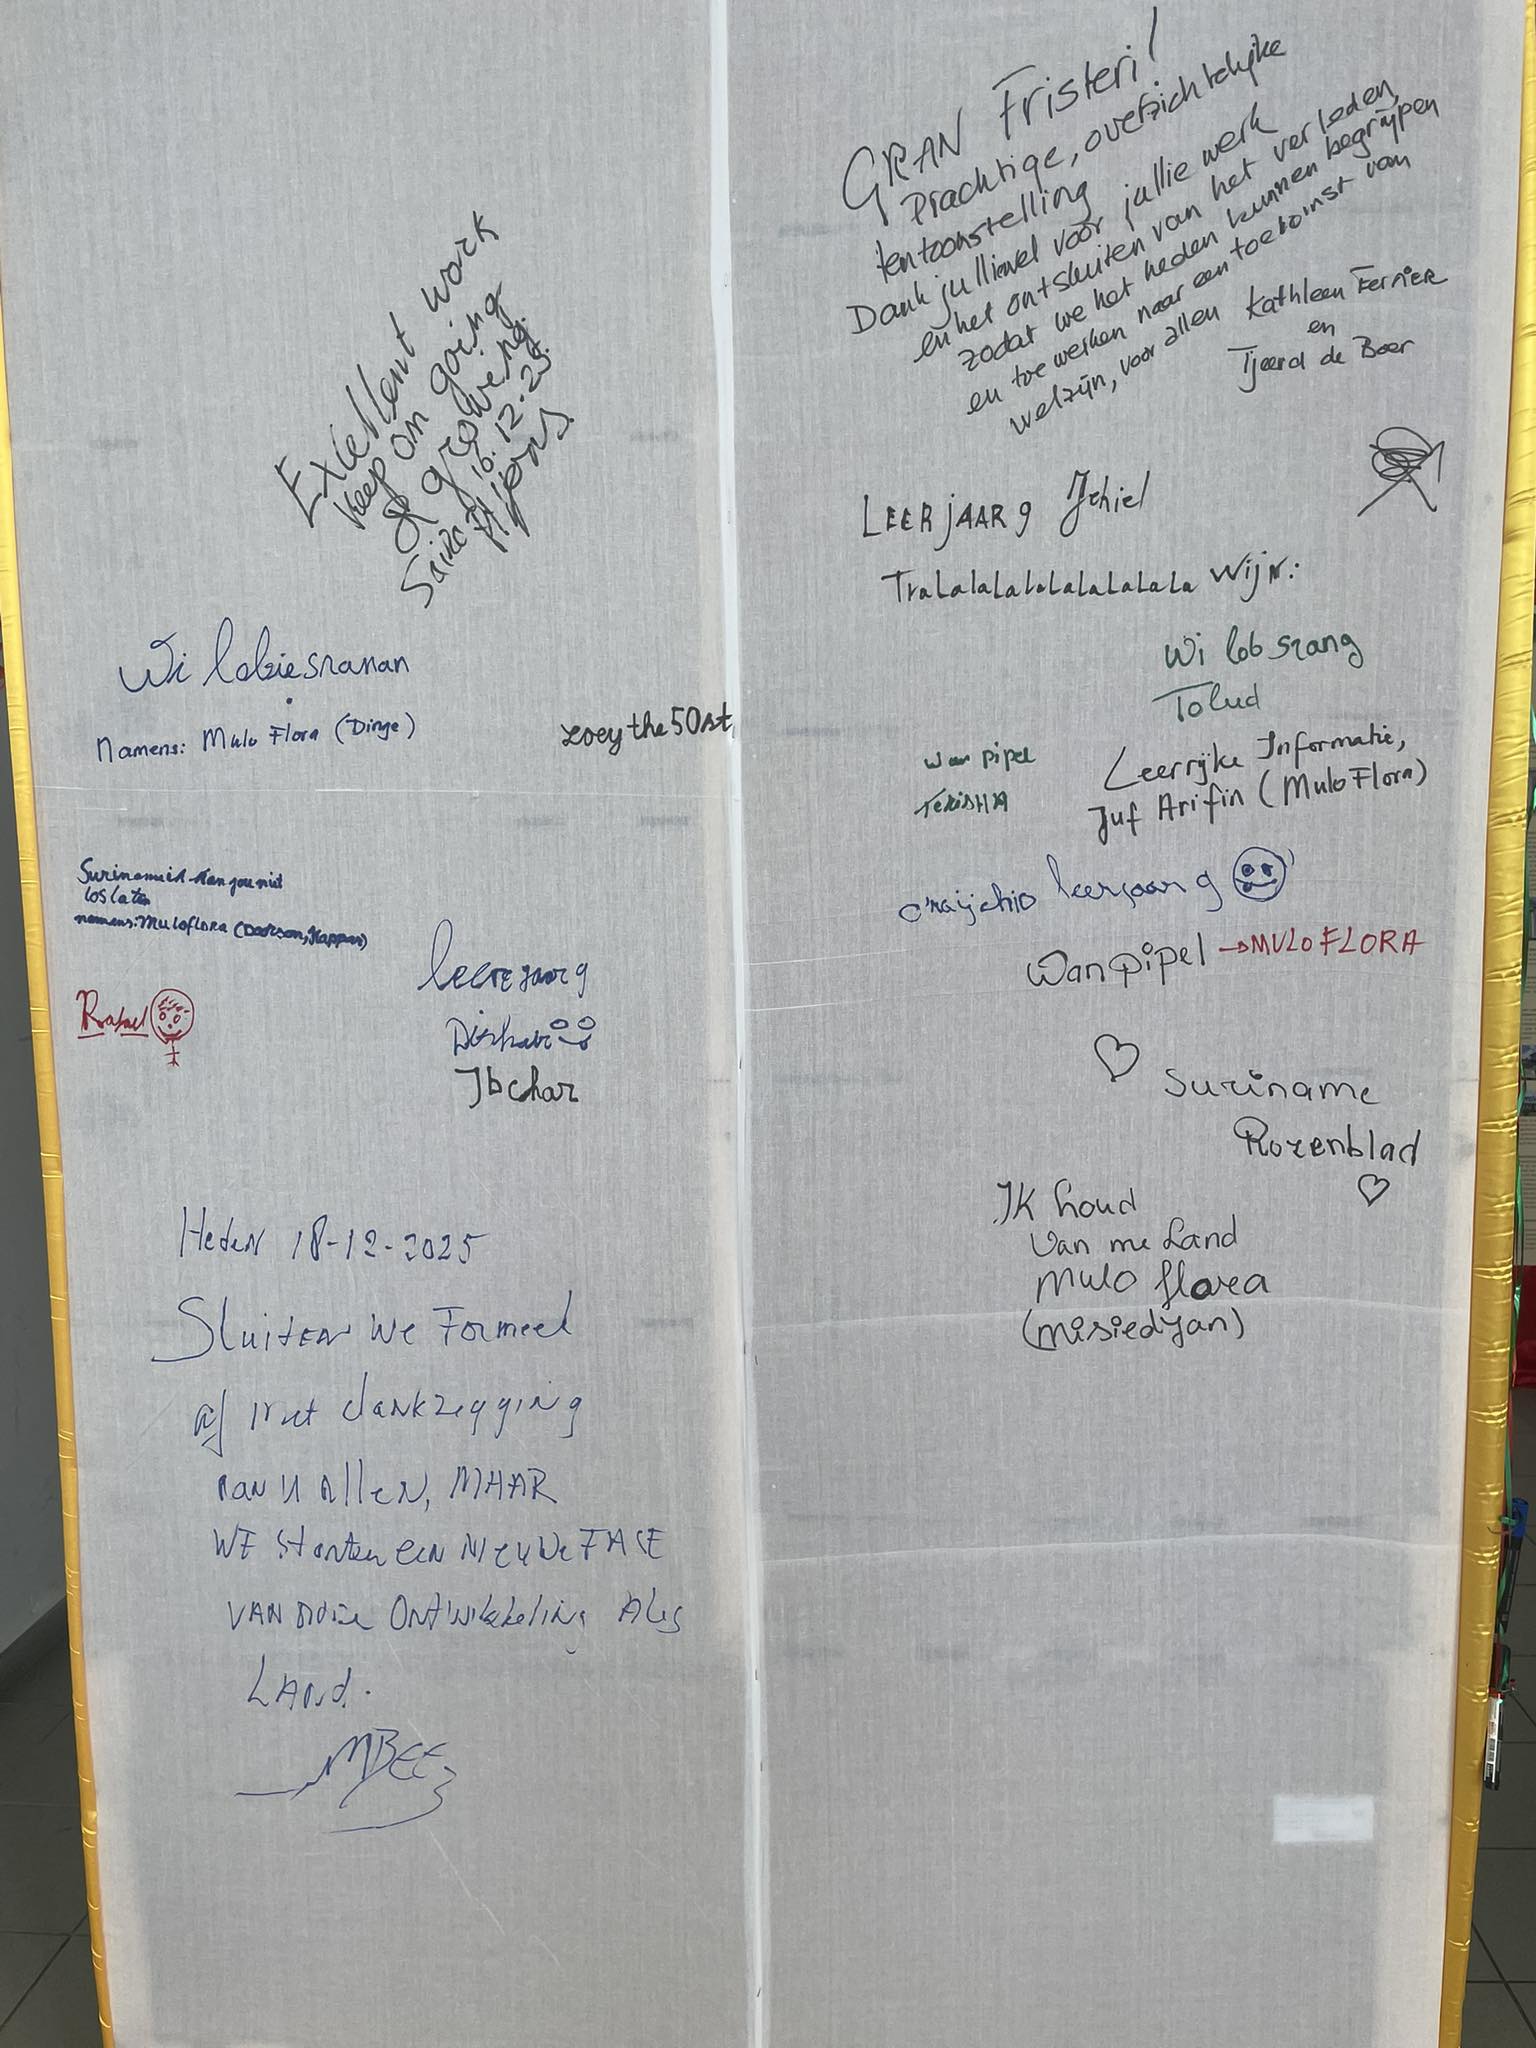 Excellent work
keep on going
& growing.
16.12.25.
Saira
Wi lobiesranan
Namens: Mulo Flora (Dinge)
zoey the 50st
los laten
namens: Muloflora
Rafael
leerjaar 9
Jbchar
Heden 18-12-2025
Sluiten we Formeel
af met dankzegging
aan U Allen, MAAR
WE starten een Nieuwe FASE
VAN onze Ontwikkeling Als
LAND.
MBEE
GRAN Fristeri!
Prachtige, overzichtelijke
tentoonstelling
Dank jullie wel voor jullie werk
en het ontsluiten van het verleden,
zodat we het heden kunnen begrijpen
en toe werken naar een toekomst van
welzijn, voor allen
Kathleen Ferrier
en
Tjeerd de Boer
LEERJAAR 9 Jehiel
TraLaLaLaLaLaLaLaLaLa Wijn:
Wi lob srang
Tolud
wan pipel
Leerrijke Informatie,
Juf Arifin (Mulo Flora)
leerjaar 9
Wan pipel → MULO FLORA
Suriname
Rozenblad
IK houd
Van me Land
Mulo flora
(Misiedjan)